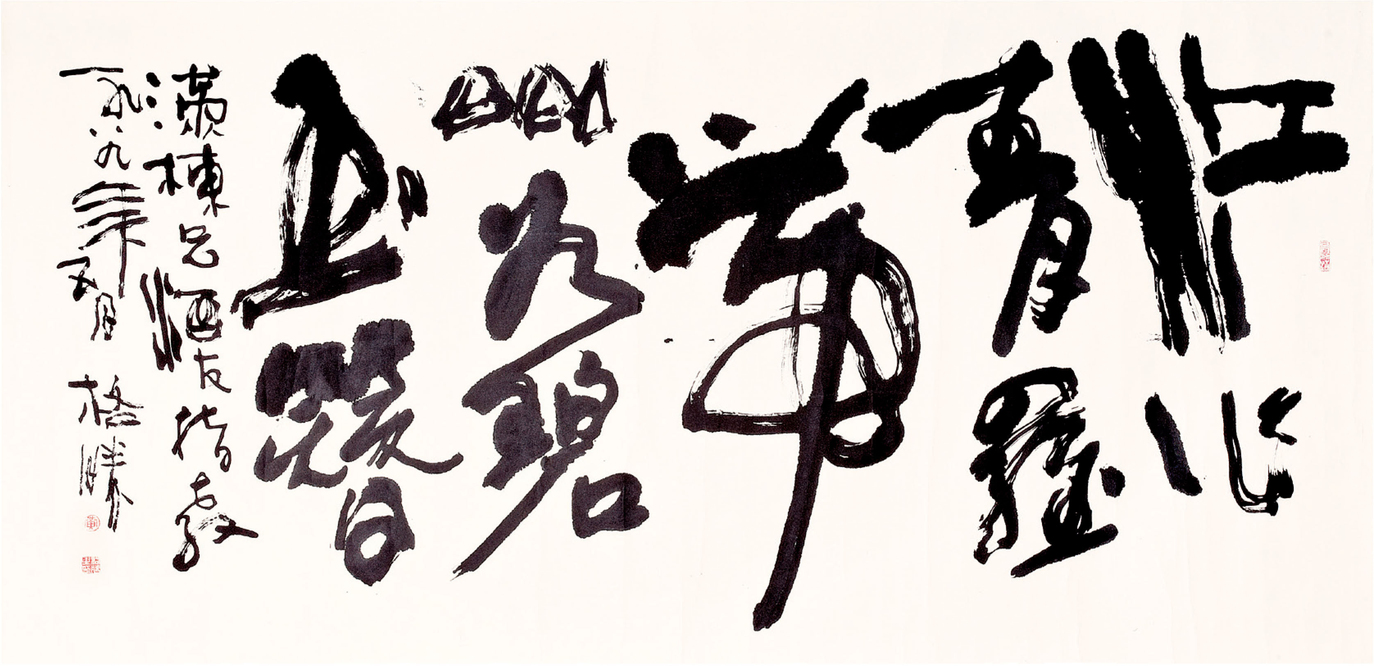 江作
青羅
帶
山如碧
玉簪
棟兄酒友指教
一九八九年五月 格勝